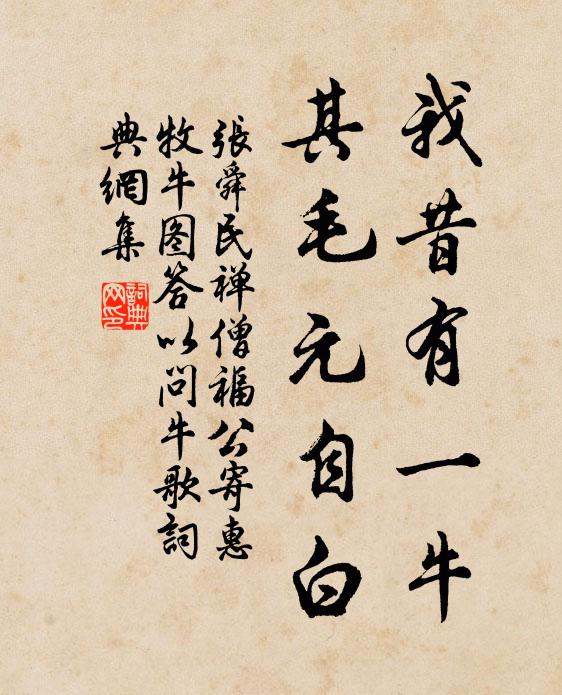 我昔有一牛
其毛元自白
張舜民禅僧福公寄惠
牧牛图答以问牛歌詞
典網集
詞典
网印